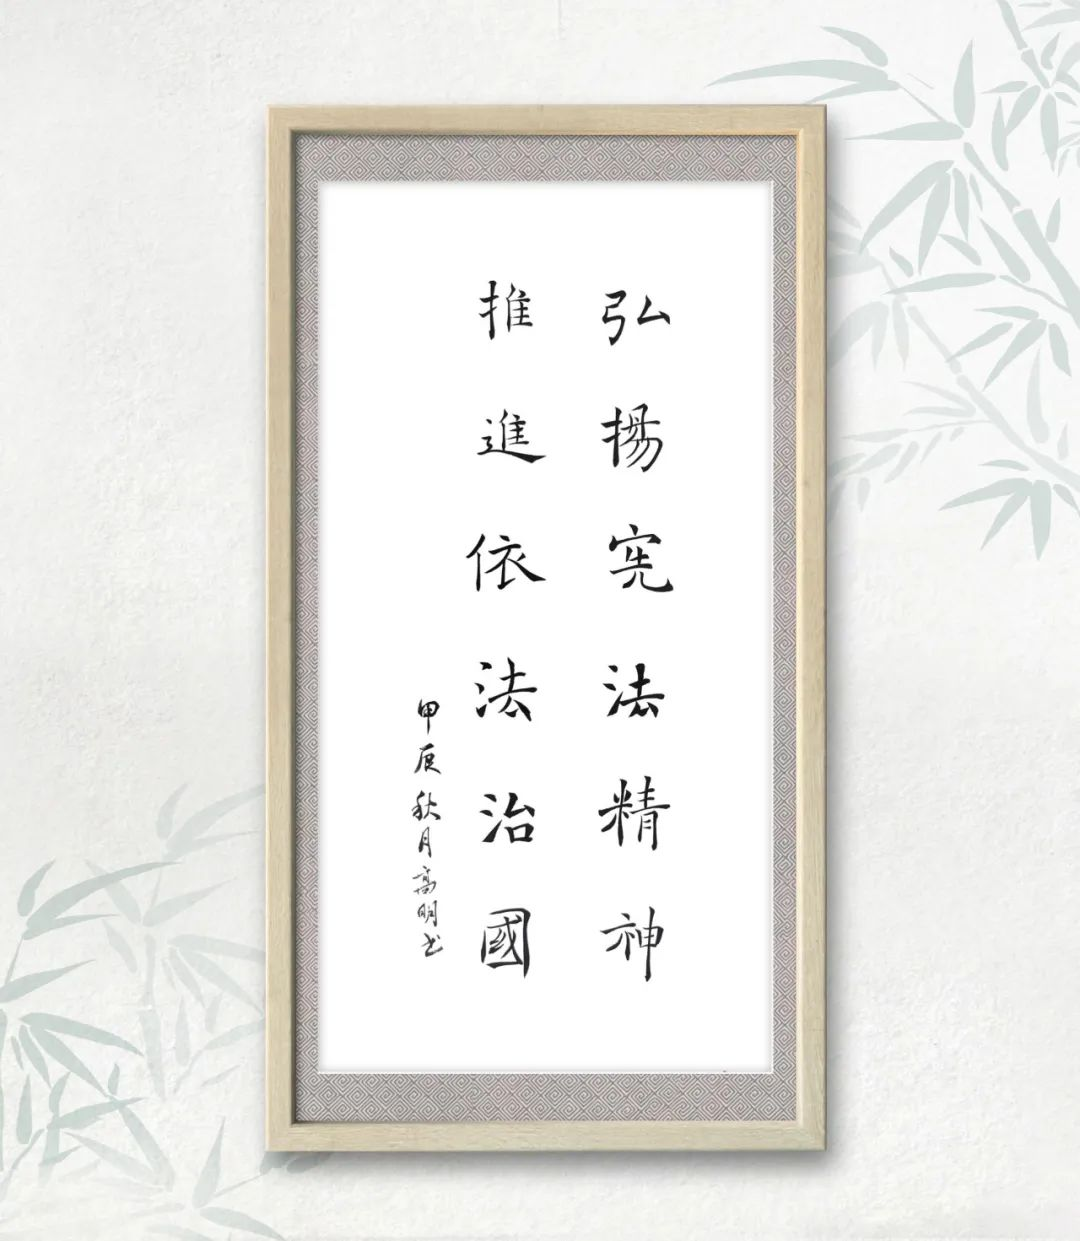 弘揚宪法精神
推進依法治國
甲辰秋月高明书